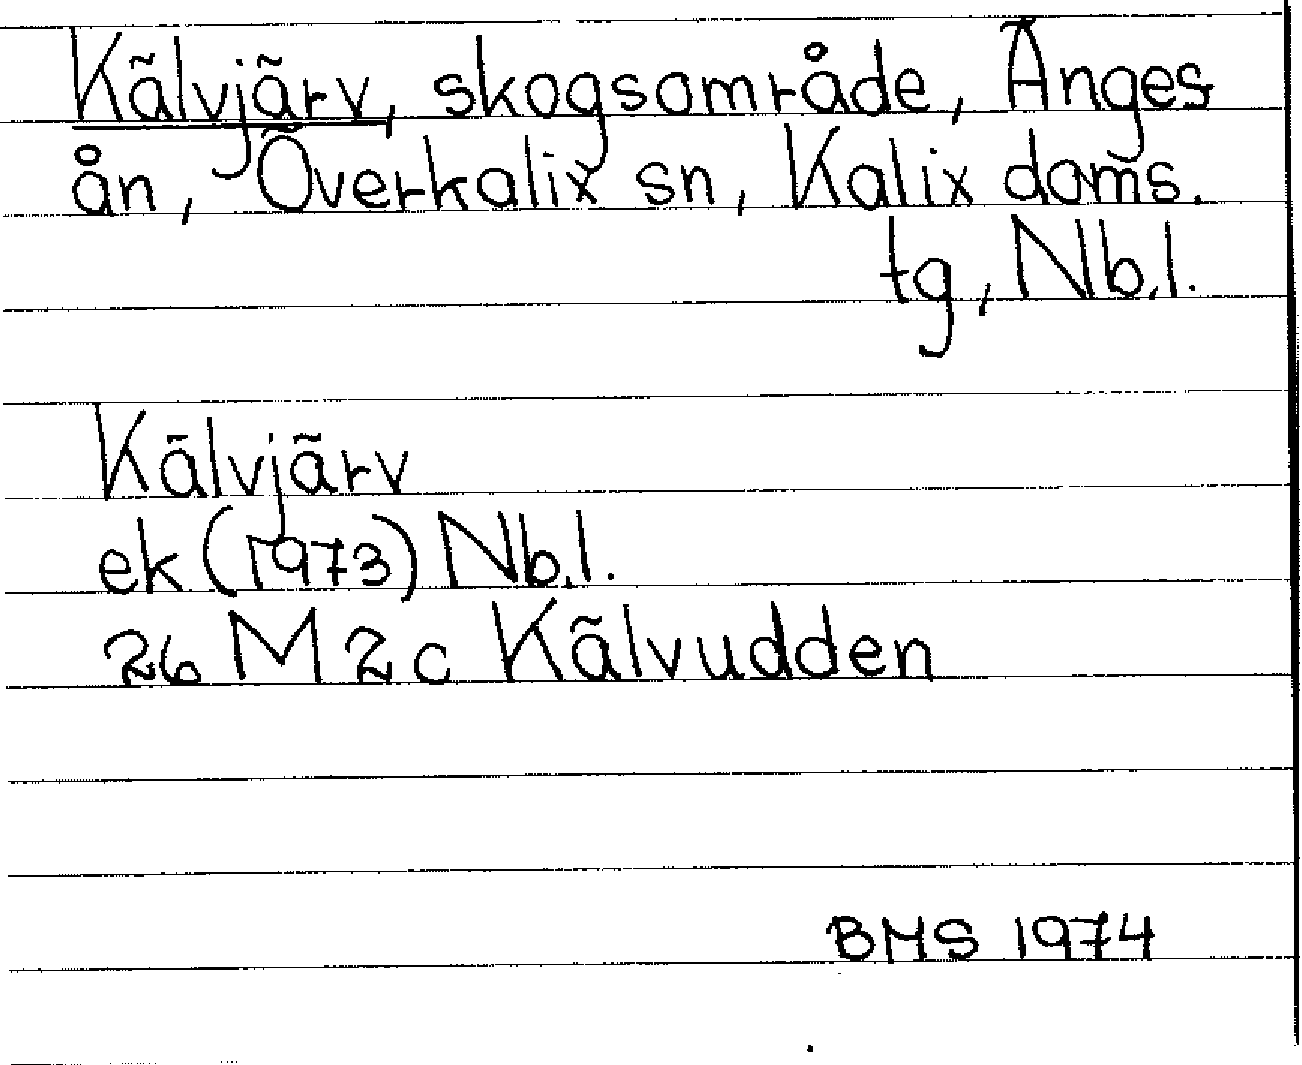 Kälvjärv, skogsområde, Änges
ån, Överkalix sn, Kalix doms.
tg, Nb.l.
Kälvjärv
ek (1973) Nb.l.
26 M 2 c Kälvudden
BMS 1974